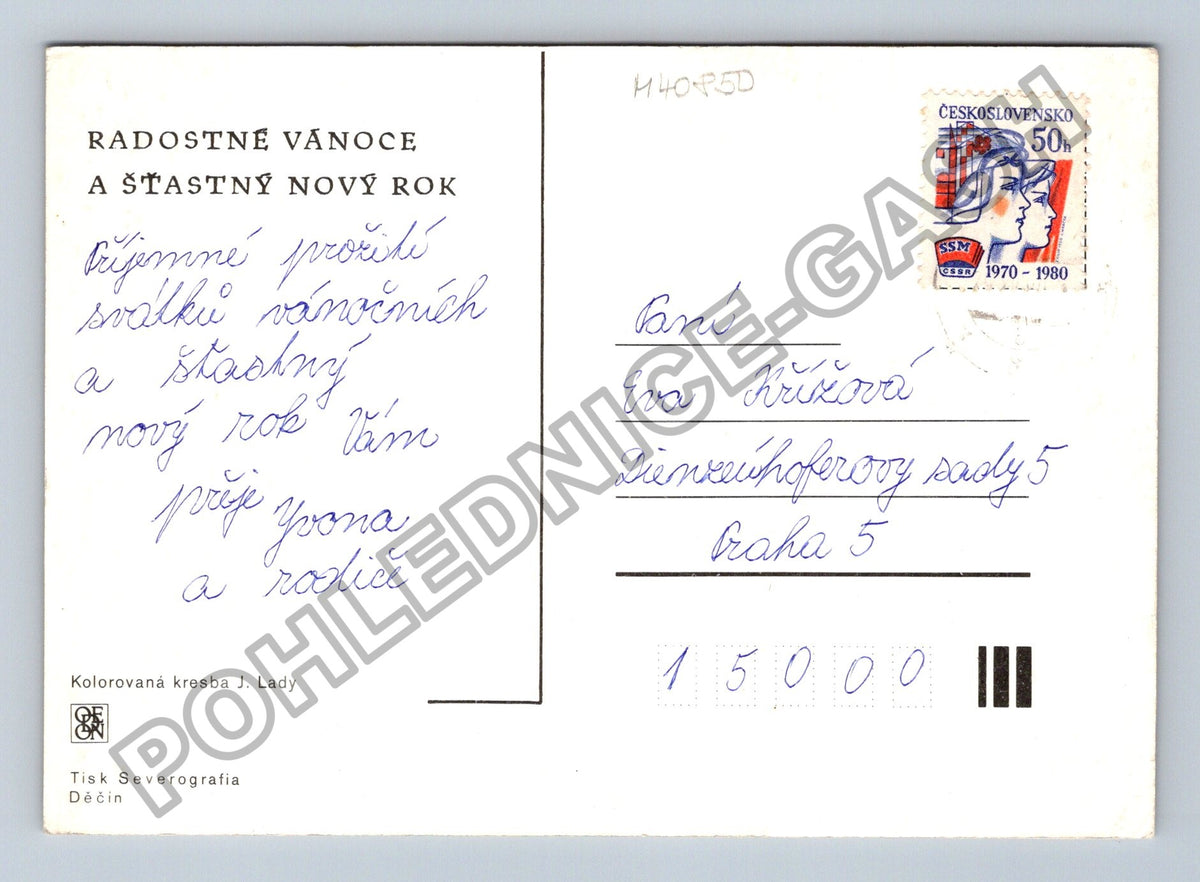 RADOSTNÉ VÁNOCE
A ŠŤASTNÝ NOVÝ ROK
Příjemné prožití
svátků vánočních
a šťastný
nový rok Vám
přeje Yvona
a rodiče
Kolorovaná kresba J. Lady
ODEON
Tisk Severografia
Děčín
M4085D
ČESKOSLOVENSKO
50h
SSM
ČSSR
1970 - 1980
Paní
Eva Křížová
Dienzeúhoferovy sady 5
Praha 5
15000
POHLEDNICE-GASH